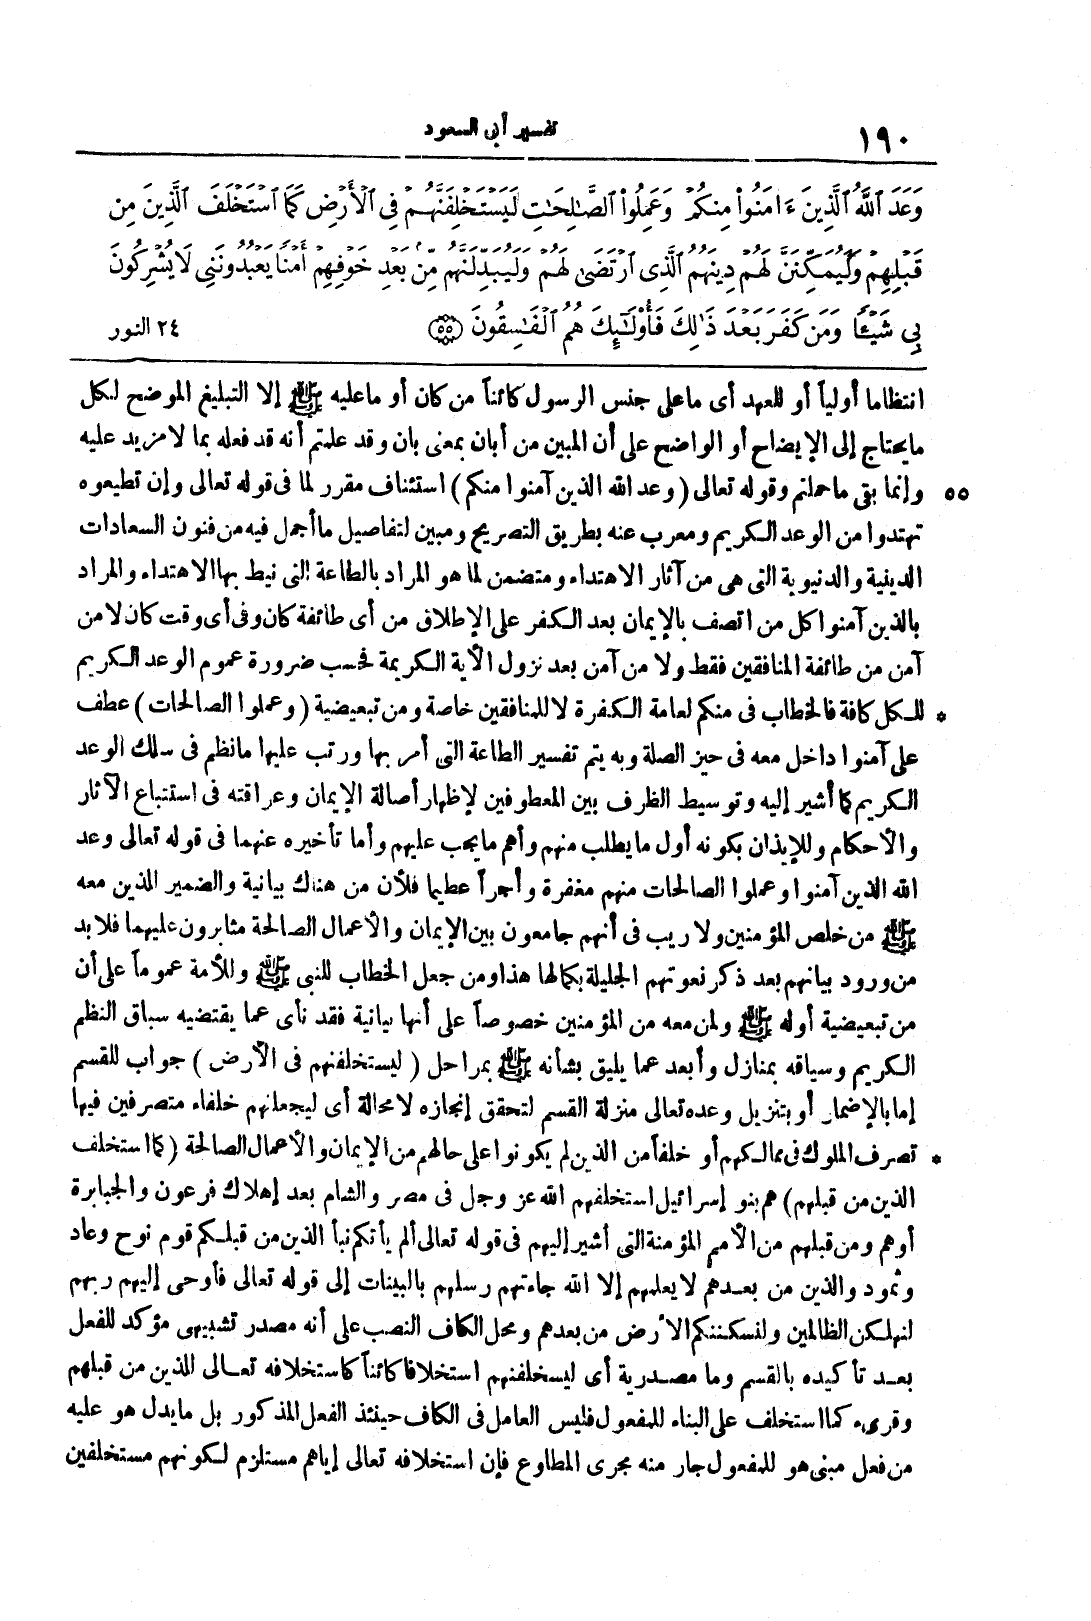 ١٩٠ تفسير أبى السعود
وَعَدَ ٱللَّهُ ٱلَّذِينَ ءَامَنُوا۟ مِنكُمْ وَعَمِلُوا۟ ٱلصَّـٰلِحَـٰتِ لَيَسْتَخْلِفَنَّهُمْ فِى ٱلْأَرْضِ كَمَا ٱسْتَخْلَفَ ٱلَّذِينَ مِن
قَبْلِهِمْ وَلَيُمَكِّنَنَّ لَهُمْ دِينَهُمُ ٱلَّذِى ٱرْتَضَىٰ لَهُمْ وَلَيُبَدِّلَنَّهُم مِّنۢ بَعْدِ خَوْفِهِمْ أَمْنًا يَعْبُدُونَنِى لَا يُشْرِكُونَ
بِى شَيْـًٔا وَمَن كَفَرَ بَعْدَ ذَٰلِكَ فَأُو۟لَـٰٓئِكَ هُمُ ٱلْفَـٰسِقُونَ (٥٥) ٢٤ النور
انتظاما أولياً أو للعهد أى ما على جنس الرسول كائناً من كان أو ما عليه ﷺ إلا التبليغ الموضح لكل
ما يحتاج إلى الإيضاح أو الواضح على أن المبين من أبان بمعنى بان وقد علمتم أنه قد فعله بما لا مزيد عليه
٥٥ وإنما بقى ما حملتم وقوله تعالى ( وعد الله الذين آمنوا منكم ) استئناف مقرر لما فى قوله تعالى وإن تطيعوه
تهتدوا من الوعد الكريم ومعرب عنه بطريق التصريح ومبين لتفاصيل ما أجمل فيه من فنون السعادات
الدينية والدنيوية التى هى من آثار الاهتداء ومتضمن لما هو المراد بالطاعة التى نيط بها الاهتداء والمراد
بالذين آمنوا كل من اتصف بالإيمان بعد الكفر على الإطلاق من أى طائفة كان وفى أى وقت كان لا من
آمن من طائفة المنافقين فقط ولا من آمن بعد نزول الآية الكريمة فحسب ضرورة عموم الوعد الكريم
* للكل كافة فالخطاب فى منكم لعامة الكفرة لا للمنافقين خاصة ومن تبعيضية ( وعملوا الصالحات ) عطف
على آمنوا داخل معه فى حيز الصلة وبه يتم تفسير الطاعة التى أمر بها ورتب عليها ما نظم فى سلك الوعد
الكريم كما أشير إليه وتوسيط الظرف بين المعطوفين لإظهار أصالة الإيمان وعراقته فى استتباع الآثار
والأحكام وللإيذان بكونه أول ما يطلب منهم وأهم ما يجب عليهم وأما تأخيره عنهما فى قوله تعالى وعد
الله الذين آمنوا وعملوا الصالحات منهم مغفرة وأجراً عظيما فلأن من هناك بيانية والضمير للذين معه
ﷺ من خلص المؤمنين ولا ريب فى أنهم جامعون بين الإيمان والأعمال الصالحة مثابرون عليهما فلا بد
من ورود بيانهم بعد ذكر نعوتهم الجليلة بكمالها هذا ومن جعل الخطاب للنبى ﷺ وللأمة عموماً على أن
من تبعيضية أو له ﷺ ولمن معه من المؤمنين خصوصاً على أنها بيانية فقد نأى عما يقتضيه سباق النظم
الكريم وسياقه بمنازل وأبعد عما يليق بشأنه ﷺ بمراحل ( ليستخلفنهم فى الأرض ) جواب للقسم
إما بالإضمار أو بتنزيل وعده تعالى منزلة القسم لتحقق إنجازه لا محالة أى ليجعلنهم خلفاء متصرفين فيها
* تصرف الملوك فى ممالكهم أو خلفاً من الذين لم يكونوا على حالهم من الإيمان والأعمال الصالحة ( كما استخلف
الذين من قبلهم ) هم بنو إسرائيل استخلفهم الله عز وجل فى مصر والشام بعد إهلاك فرعون والجبابرة
أو هم ومن قبلهم من الأمم المؤمنة التى أشير إليهم فى قوله تعالى ألم يأتكم نبأ الذين من قبلكم قوم نوح وعاد
وثمود والذين من بعدهم لا يعلمهم إلا الله جاءتهم رسلهم بالبينات إلى قوله تعالى فأوحى إليهم ربهم
لنهلكن الظالمين ولنسكننكم الأرض من بعدهم ومحل الكاف النصب على أنه مصدر تشبيهى مؤكد للفعل
بعد تأكيده بالقسم وما مصدرية أى ليسخلفنهم استخلافا كائناً كاستخلافه تعالى للذين من قبلهم
وقرىء كما استخلف على البناء للمفعول فليس العامل فى الكاف حينئذ الفعل المذكور بل ما يدل هو عليه
من فعل مبنى هو للمفعول جار منه مجرى المطاوع فإن استخلافه تعالى إياهم مستلزم لكونهم مستخلفين